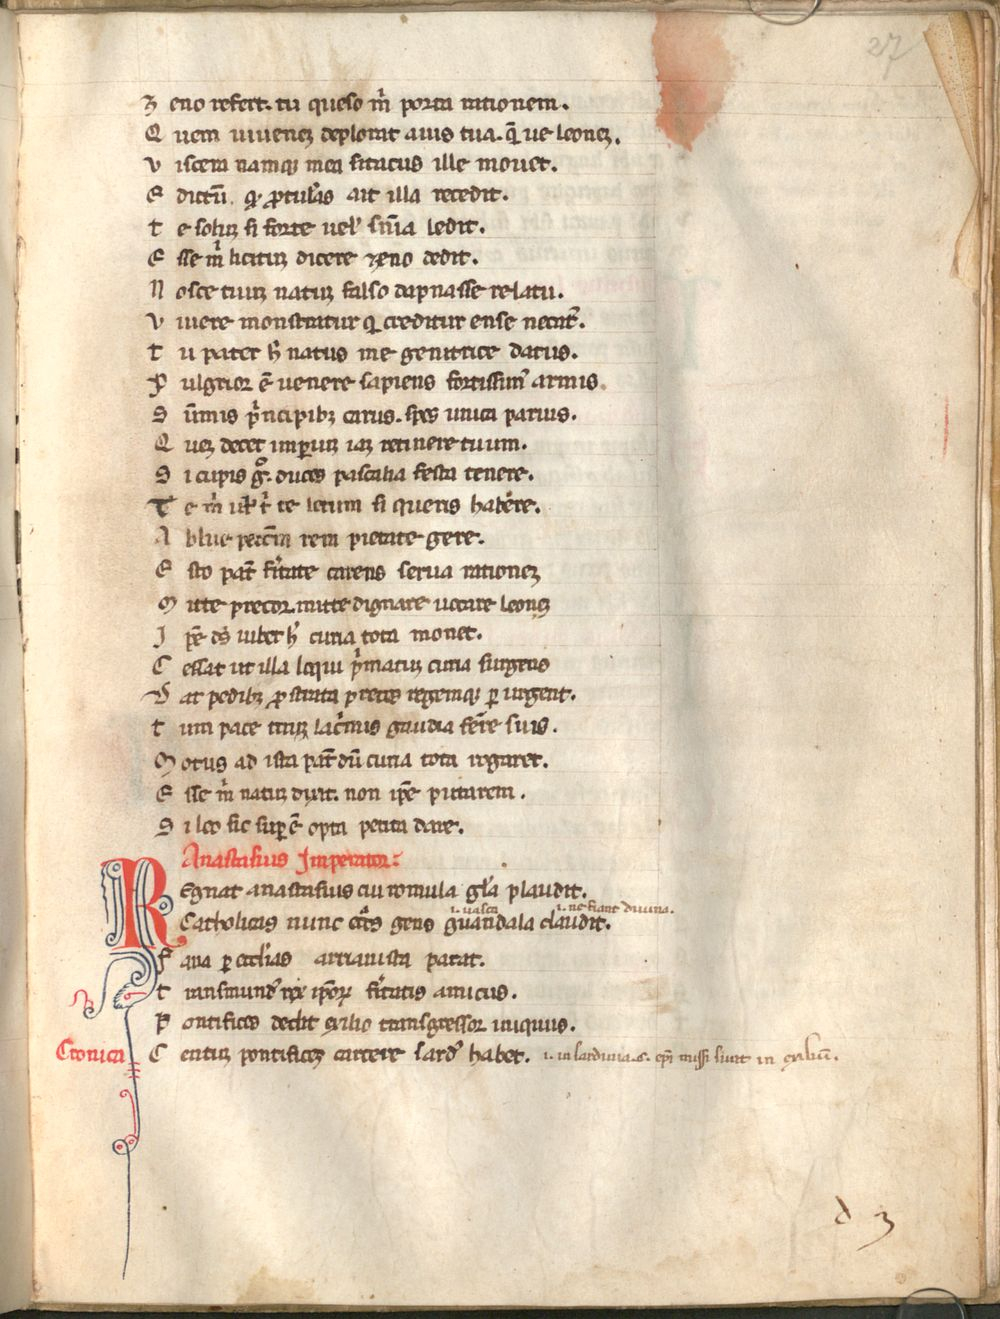 27
Z eno refert. tu queso m̄ porta rationem.
Q uem viuenꝫ deplorat auis tua. q̄ ue leonꝫ.
V iscera namqꝫ mea sitacus ille mouet.
E dictū. ait illa recedit.
T e solū si forte uel ledit.
E sse m̄ licitū dicere zeno dedit.
N osce tuū natū falso dapnasse relatu.
V iuere monstratur q̄ creditur ense necat᷑.
T u pater h̄ natus me genitrice datus.
P ulgrior ē uenere sapiens fortissim᷑ armis.
S ūmis p̄ncipibꝫ carus. spes unica parius.
Q uē decet imꝑiū iā retinere tuum.
S i cupis gͦ. duces pascalia festa tenere.
T e m̄ te letum si queris habēre.
A blue rem pietate gere.
E sto pat̄ f̄itate carens serua rationeꝫ
M itte precor mitte dignare uocare leonꝫ
I p̄e ds̄ iubet h̄ curia tota monet.
C essat ut illa loqui p̄matū curia surgens
D at pedibꝫ ꝓstrata preces regemqꝫ ꝑ urgent.
T um pace lac̄mis gaudia fēre suis.
M otus ad ista pat̄ dū curia tota rogaret.
E sse m̄ natū dixit. non ip̄e putarem.
S i leo sic sup̄ē opta petita dare.
Anastasius Imperator:
R Egnat anastasius cui romula gl̄a plaudit.
i. uasta i. ne fiant diuina.
Catholicas nunc gens guandala claudit.
F ana ꝑ ecclīas arrianista patat.
T ransmund᷑ rex ip̄oꝝ f̄itatis amicus.
P ontifices dedit exilio transgressor iniquus.
Cronica C entū pontificeꝫ carcere sard᷑ habet. i. in sardinia. c. ep̄i missi sunt in exiliū.
d 3